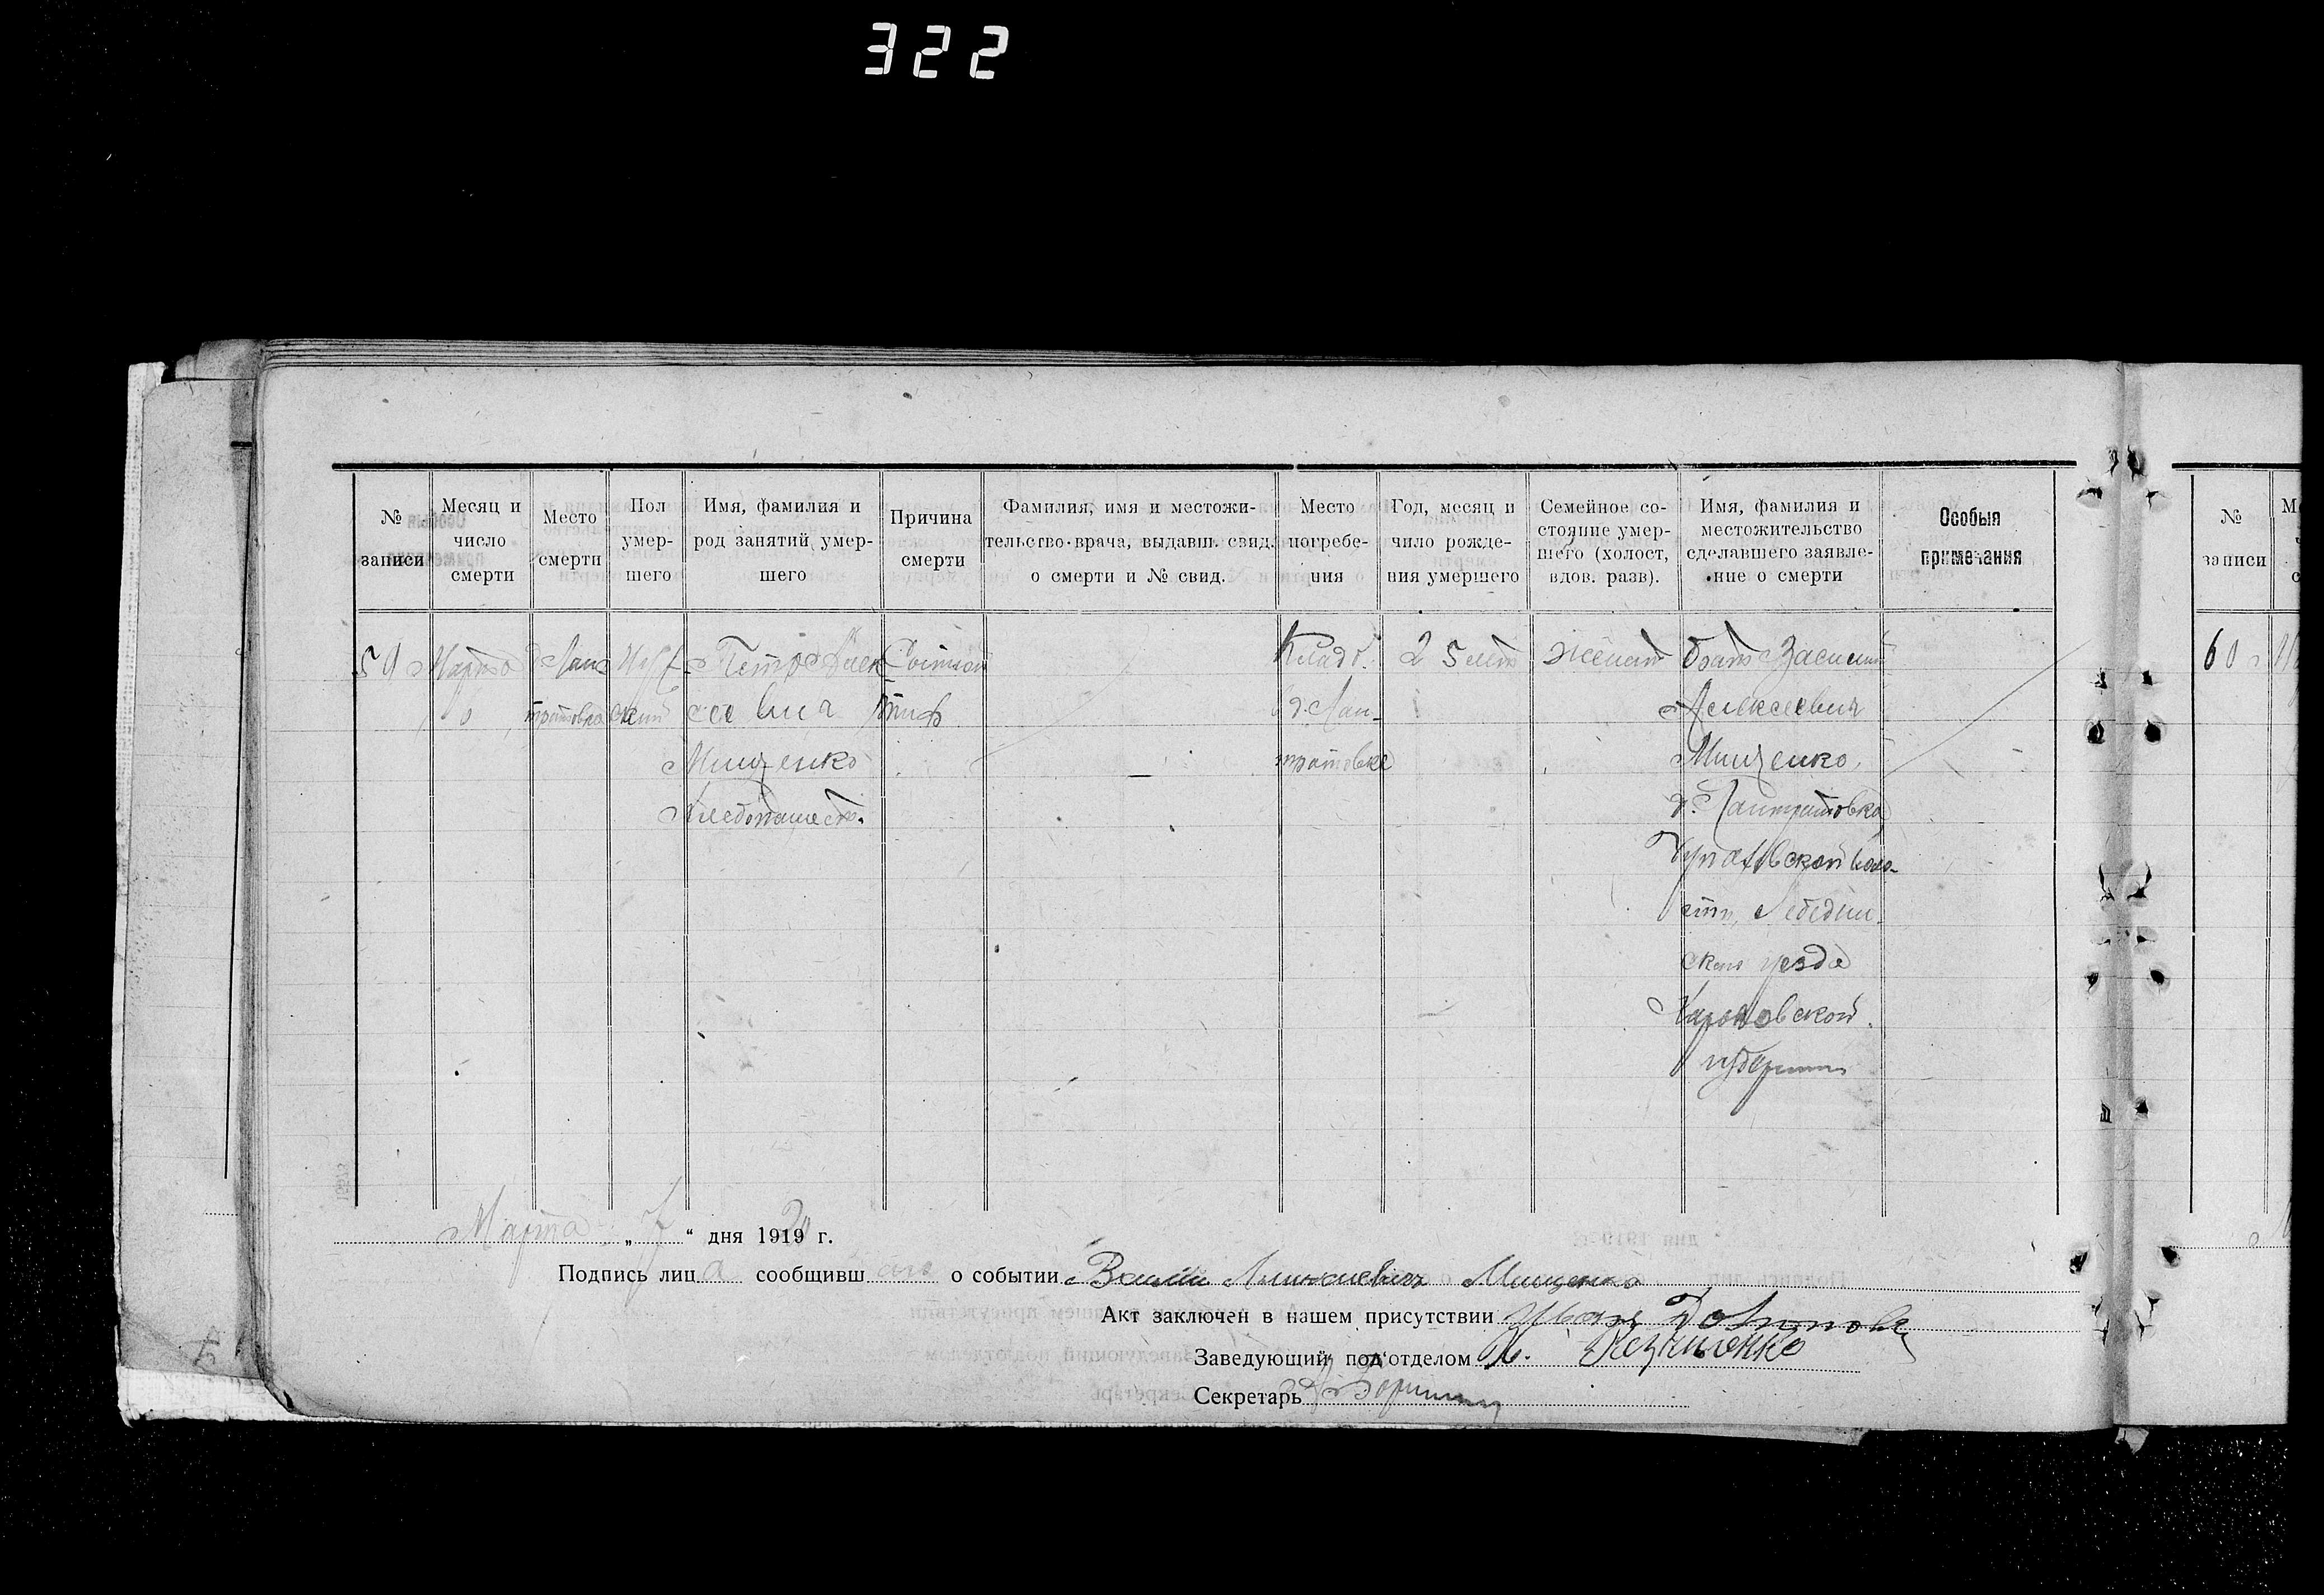 322
№ записи
Месяц и число смерти
Место смерти
Пол умер- шего
Имя, фамилия и род занятий умер- шего
Причина смерти
Фамилия, имя и местожи- тельство врача, выдавш. свид. о смерти и № свид.
Место погребе- ния
Год, месяц и число рожде- ния умершего
Семейное со- стояние умер- шего (холост, вдов. разв).
Имя, фамилия и местожительство сделавшего заявле- ние о смерти
Особыя примечания
№ записи
59
Марта
6
ский
Петр Алек
сеевич
Мищенко
Хлебопашест.
Сыпной
тиф
Кладб.
в д. Лан-
тратовке
25 лет
женат
брат Василий
Алексеевич
Мищенко,
д. Лантратовка
воло-
сти, Лебедин-
ского уезда
Харьковской
губернии
60
Марта „ 7 “ дня 1920 г.
Подпись лица сообщившаго о событии Василий Алексеевич Мищенко
Акт заключен в нашем присутствии Иван
Заведующий под‘отделом
Секретарь